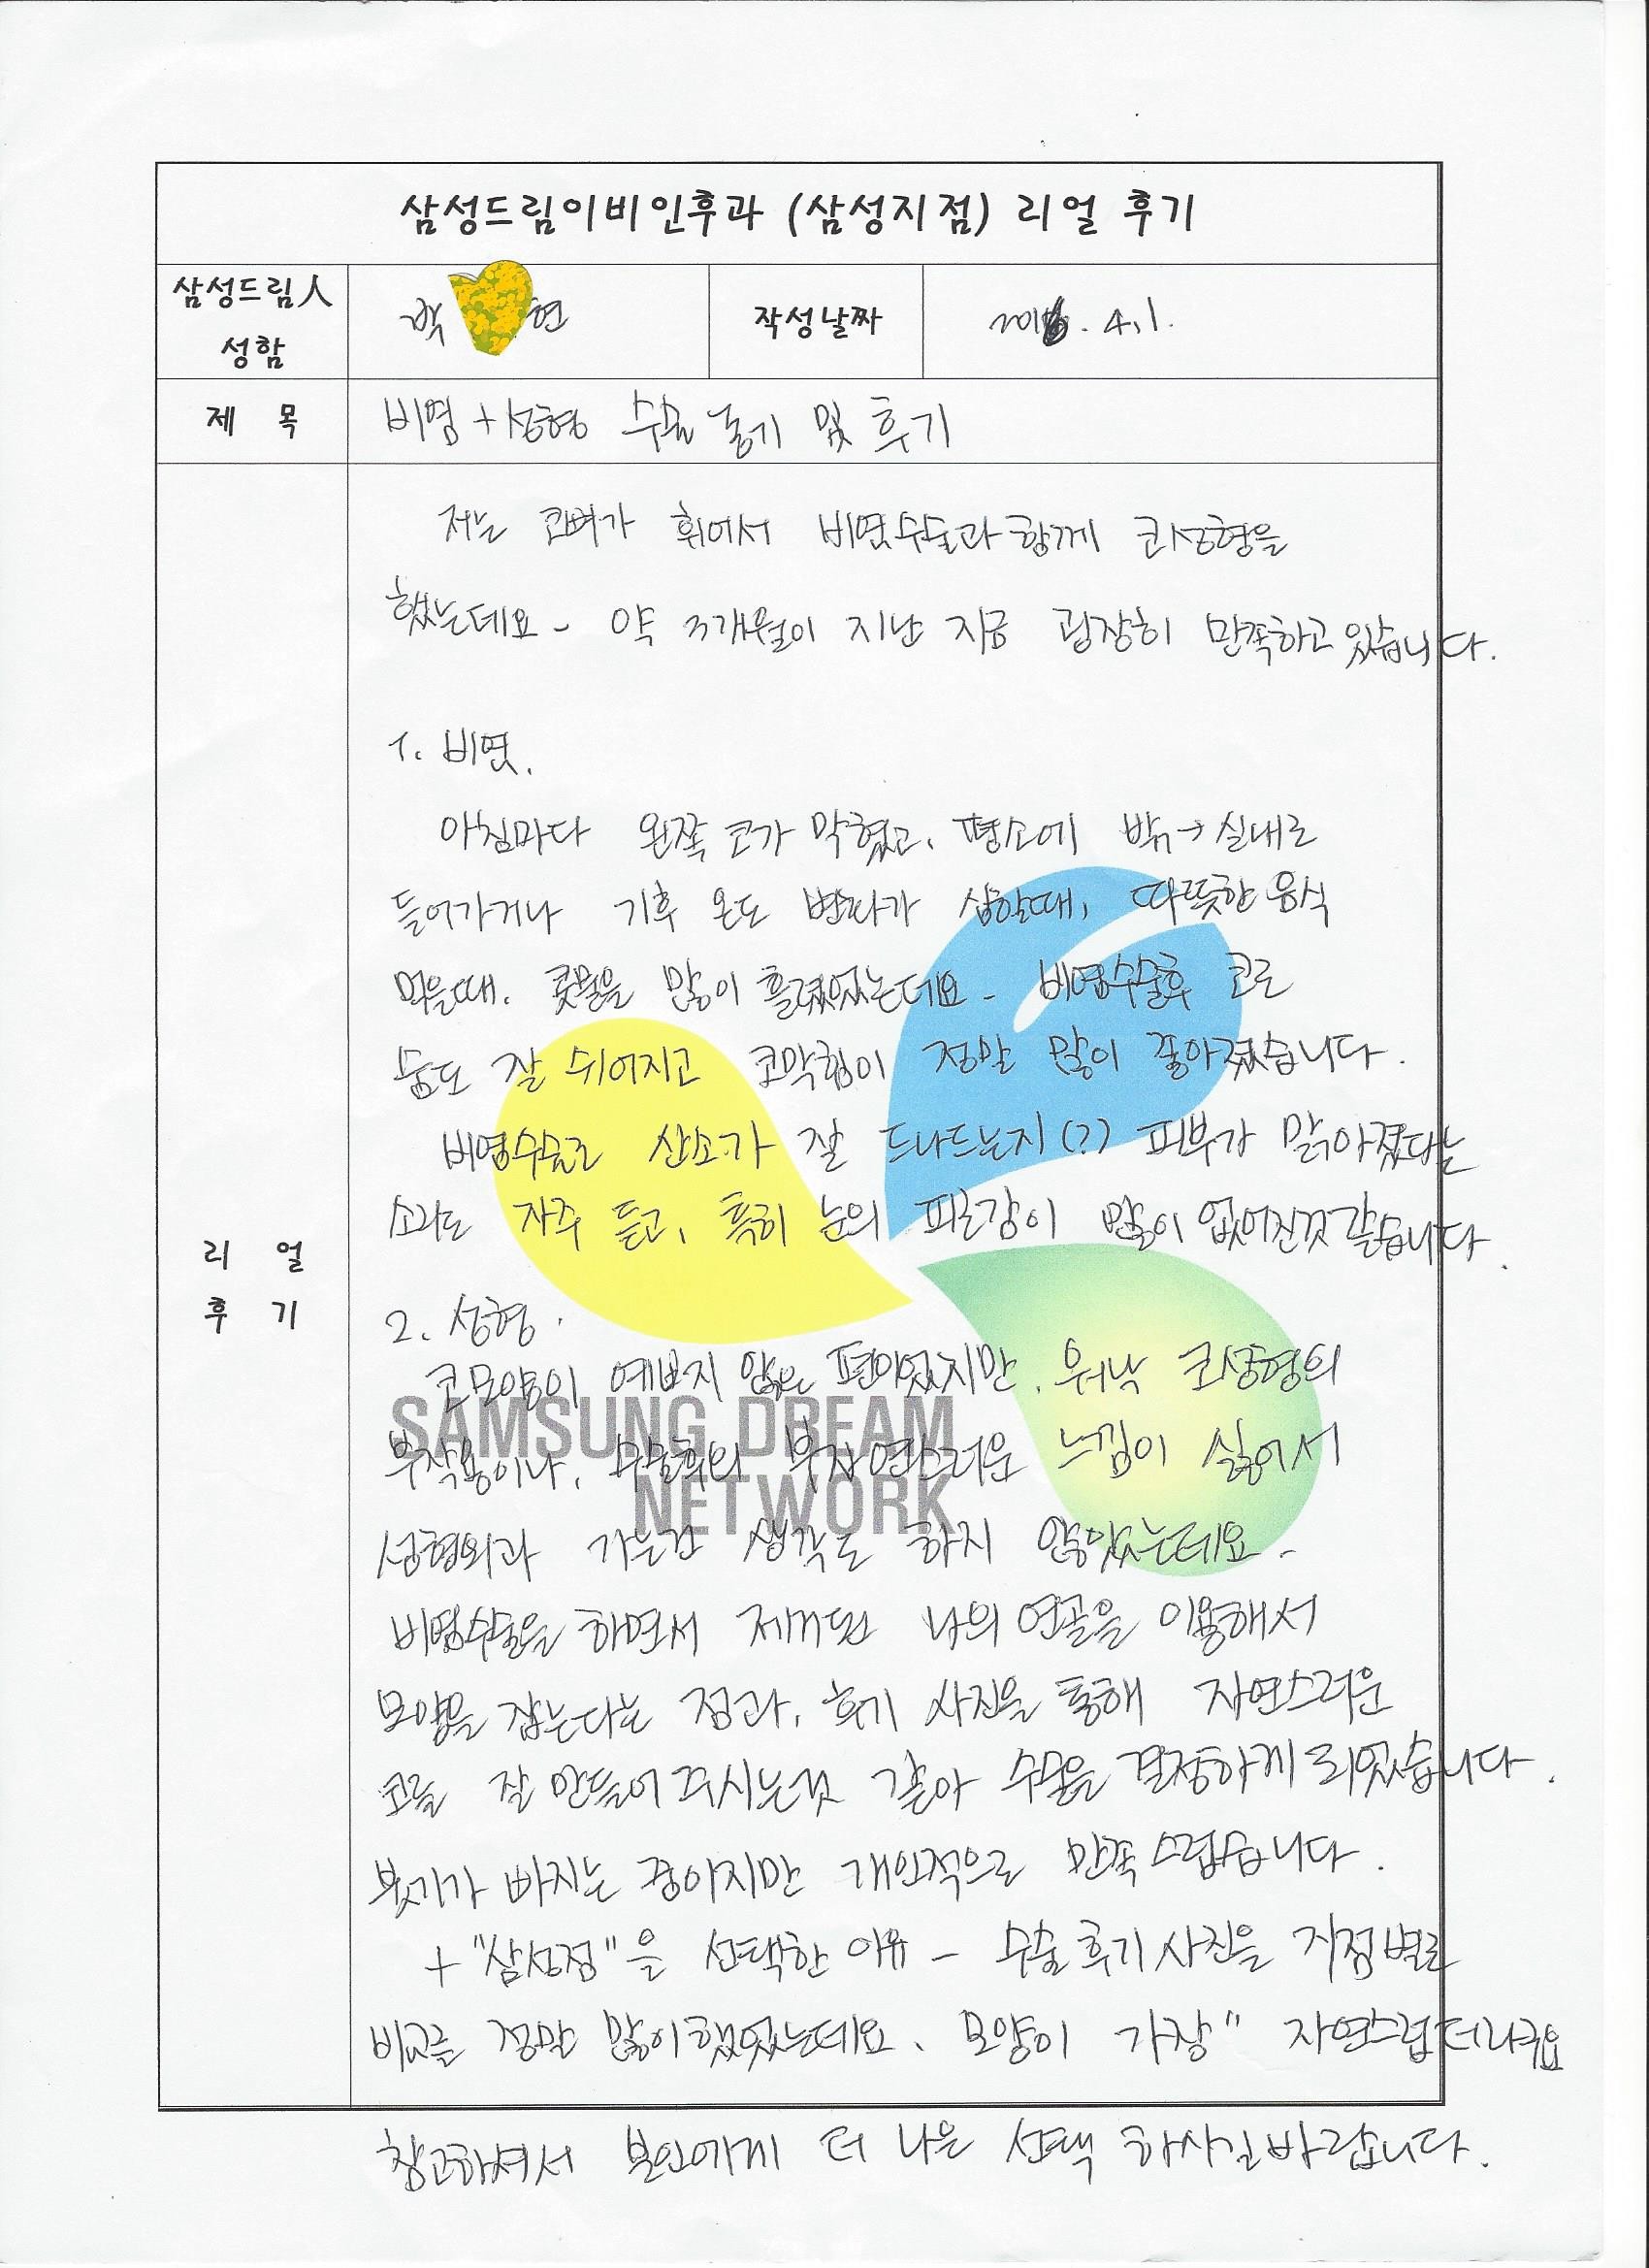 삼성드림이비인후과 (삼성지점) 리얼 후기
삼성드림人
성함
박 현
작성날짜
2016. 4. 1.
제 목
비염 + 성형 수술 동기 및 후기
저는 코뼈가 휘어서 비염수술과 함께 코성형을
했는데요 - 약 3개월이 지난 지금 굉장히 만족하고 있습니다.
1. 비염.
아침마다 왼쪽 코가 막혔고, 평소에 밖→실내로
들어가거나 기후 온도 변화가 심할때, 따뜻한 음식
먹을때. 콧물을 많이 흘렸었는데요 - 비염수술후 코로
숨도 잘 쉬어지고 코막힘이 정말 많이 좋아졌습니다.
비염수술로 산소가 잘 드나드는지(?) 피부가 맑아졌다는
소리도 자주 듣고, 특히 눈의 피로감이 많이 없어진것 같습니다.
리 얼
후 기
2. 성형.
코모양이 예쁘지 않은 편이었지만, 워낙 코성형의
부작용이나, 수술후의 부자연스러운 느낌이 싫어서
SAMSUNG DREAM
NETWORK
성형외과 가는건 생각도 하지 않았는데요 -
비염수술을 하면서 제거된 나의 연골을 이용해서
모양을 잡는다는 점과, 후기 사진을 통해 자연스러운
코를 잘 만들어 주시는것 같아 수술을 결정하게 되었습니다.
붓기가 빠지는 중이지만 개인적으로 만족스럽습니다.
+ "삼성점"을 선택한 이유 - 수술 후기 사진을 지점별로
비교를 정말 많이 했었는데요. 모양이 가장" 자연스럽더라구요
참고하셔서 본인에게 더 나은 선택 하시길바랍니다.